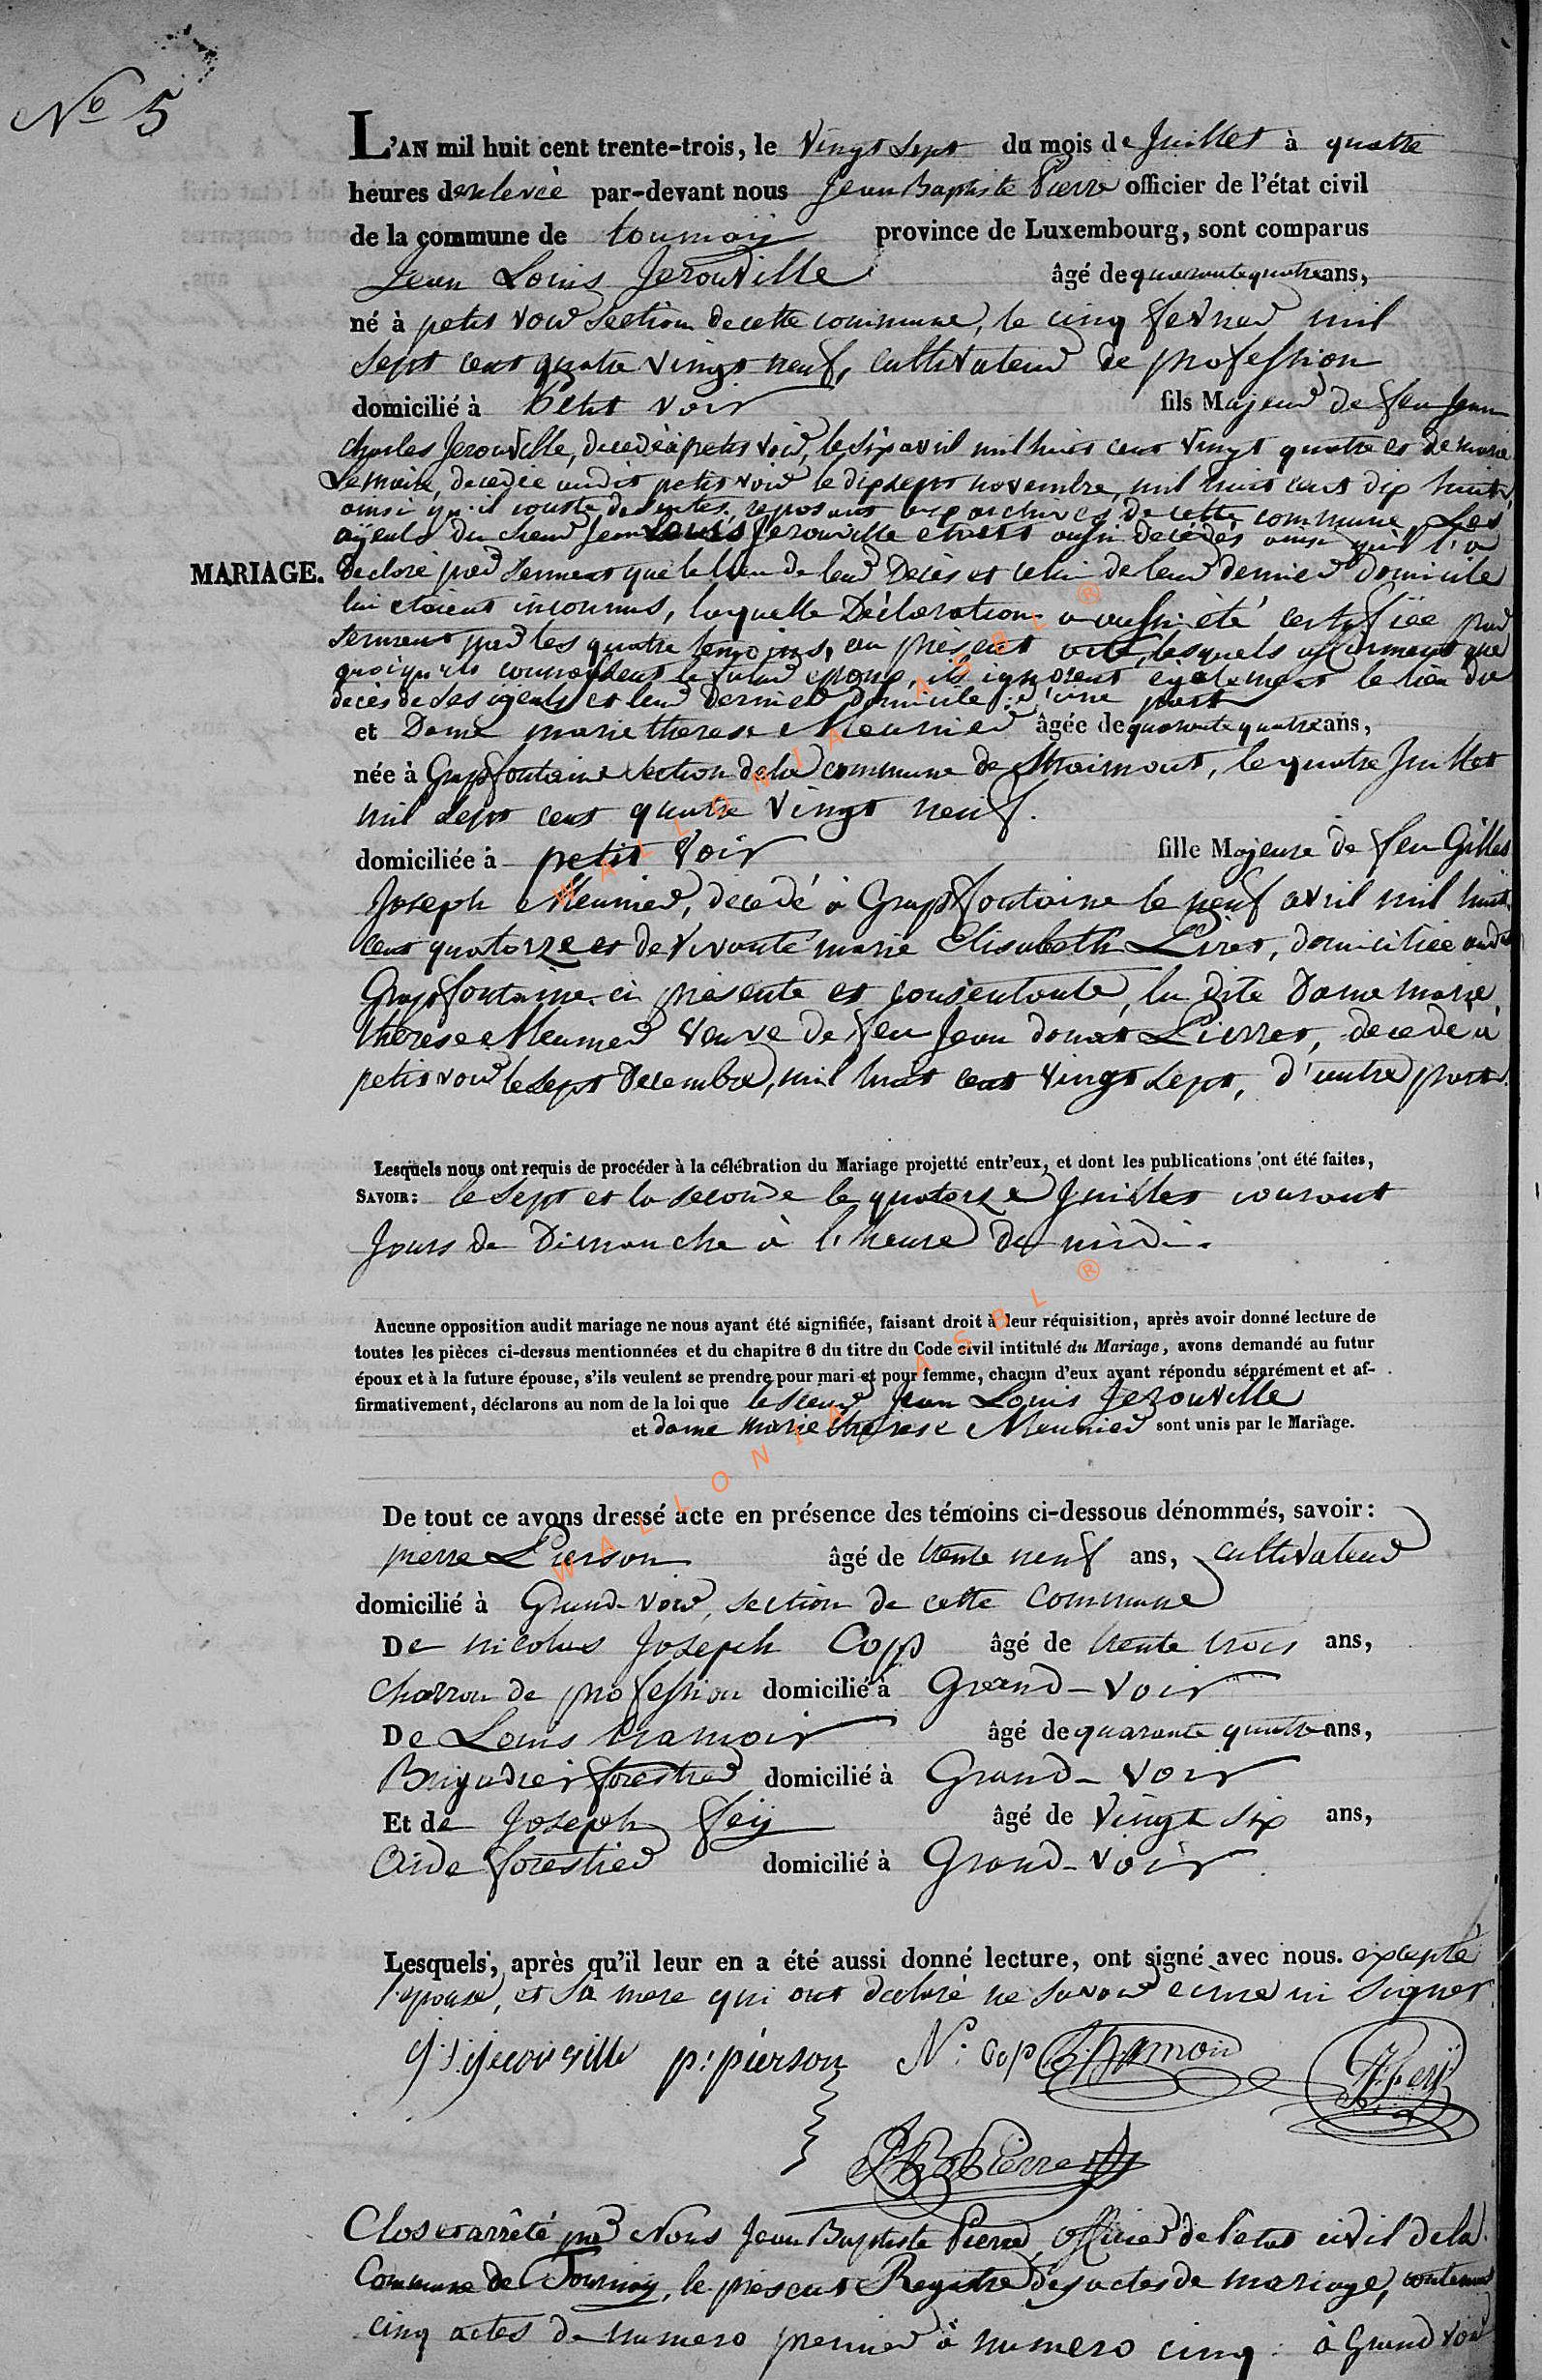 No 5
L'AN mil huit cent trente-trois, le vingt sept du mois de Juillet à quatre
heures de relevée par-devant nous Jean Baptiste Pierre officier de l'état civil
de la commune de tournay province de Luxembourg, sont comparus
Jean Louis Jerouville âgé de quarante quatre ans,
né à petit voir section de cette commune, le cinq fevrier mil
sept cent quatre vingt neuf, cultivateur de profession
domicilié à Petit voir fils Majeur de feu Jean
charles Jerouville, decedé à petit voir, le six avril mil huit cent vingt quatre et de marie
Lemaire, decedée audit petit voir le dix sept novembre, mil huit cent dix huit
ainsi qu'il conste des actes reposant aux archives de cette commune, Les
ayeuls du sieur Jean Louis Jerouville étant aussi décédés ainsi qu'il l'a
MARIAGE. declaré par serment que le lieu de leur Décès et celui de leur dernier domicile
lui etaient inconnus, laquelle Déclaration a aussi été certifiée par
serment par les quatre temoins, au présent acte, lesquels affirment que
quoiqu'ils connaissent le futur epoux, ils ignorent également le lieu du
décès de ses ayeuls et leur dernier domicile : d'une part
et Dame marie therese Meunier âgée de quarante quatre ans,
née à Grapfontaine section de la commune de Straimont, le quatre Juillet
mil sept cent quatre vingt neuf.
domiciliée à petit voir fille Majeure de feu Gilles
Joseph Meunier, decedé à Grapfontaine le neuf avril mil huit
cent quatorze et de vivante marie Elisabeth domiciliée audit
Grapfontaine ci présente et consentante, la dite Dame marie
thérese Meunier veuve de feu Jean donat Pierret, decedé à
petit voir le sept Decembre, mil huit cent vingt sept, d'autre part
Lesquels nous ont requis de procéder à la célébration du Mariage projetté entr'eux, et dont les publications ont été faites,
SAVOIR : le sept et la seconde le quatorze Juillet courant
Jours de Dimanche à l'heure de midi.
Aucune opposition audit mariage ne nous ayant été signifiée, faisant droit à leur réquisition, après avoir donné lecture de
toutes les pièces ci-dessus mentionnées et du chapitre 6 du titre du Code civil intitulé du Mariage, avons demandé au futur
époux et à la future épouse, s'ils veulent se prendre pour mari et pour femme, chacun d'eux ayant répondu séparément et af-
firmativement, déclarons au nom de la loi que le sieur Jean Louis Jerouville
et dame marie therese Meunier sont unis par le Mariage.
De tout ce avons dressé acte en présence des témoins ci-dessous dénommés, savoir :
pierre Pierson âgé de trente neuf ans, cultivateur
domicilié à Grand-voir, section de cette commune
De nicolas Joseph Cop âgé de trente trois ans,
charron de profession domicilié à Grand-voir
De Louis hamoir âgé de quarante quatre ans,
Brigadier forestier domicilié à Grand-voir
Et de Joseph feÿ âgé de vingt six ans,
Aide forestier domicilié à Grand-voir
Lesquels, après qu'il leur en a été aussi donné lecture, ont signé avec nous. excepté
l'epouse, et sa mere qui ont declaré ne savoir ecrire ni signer
Jerouville p: pierson N: Cop L. hamoir J feÿ
JB Pierre
Clos et arrêté par Nous Jean Baptiste Pierre, Officier de l'état civil de la
Commune de Tournay, le present Registre des actes de mariage, contenant
cinq actes de numero premier à numero cinq. à Grand voir
WALLONIA ASBL ®
WALLONIA ASBL ®